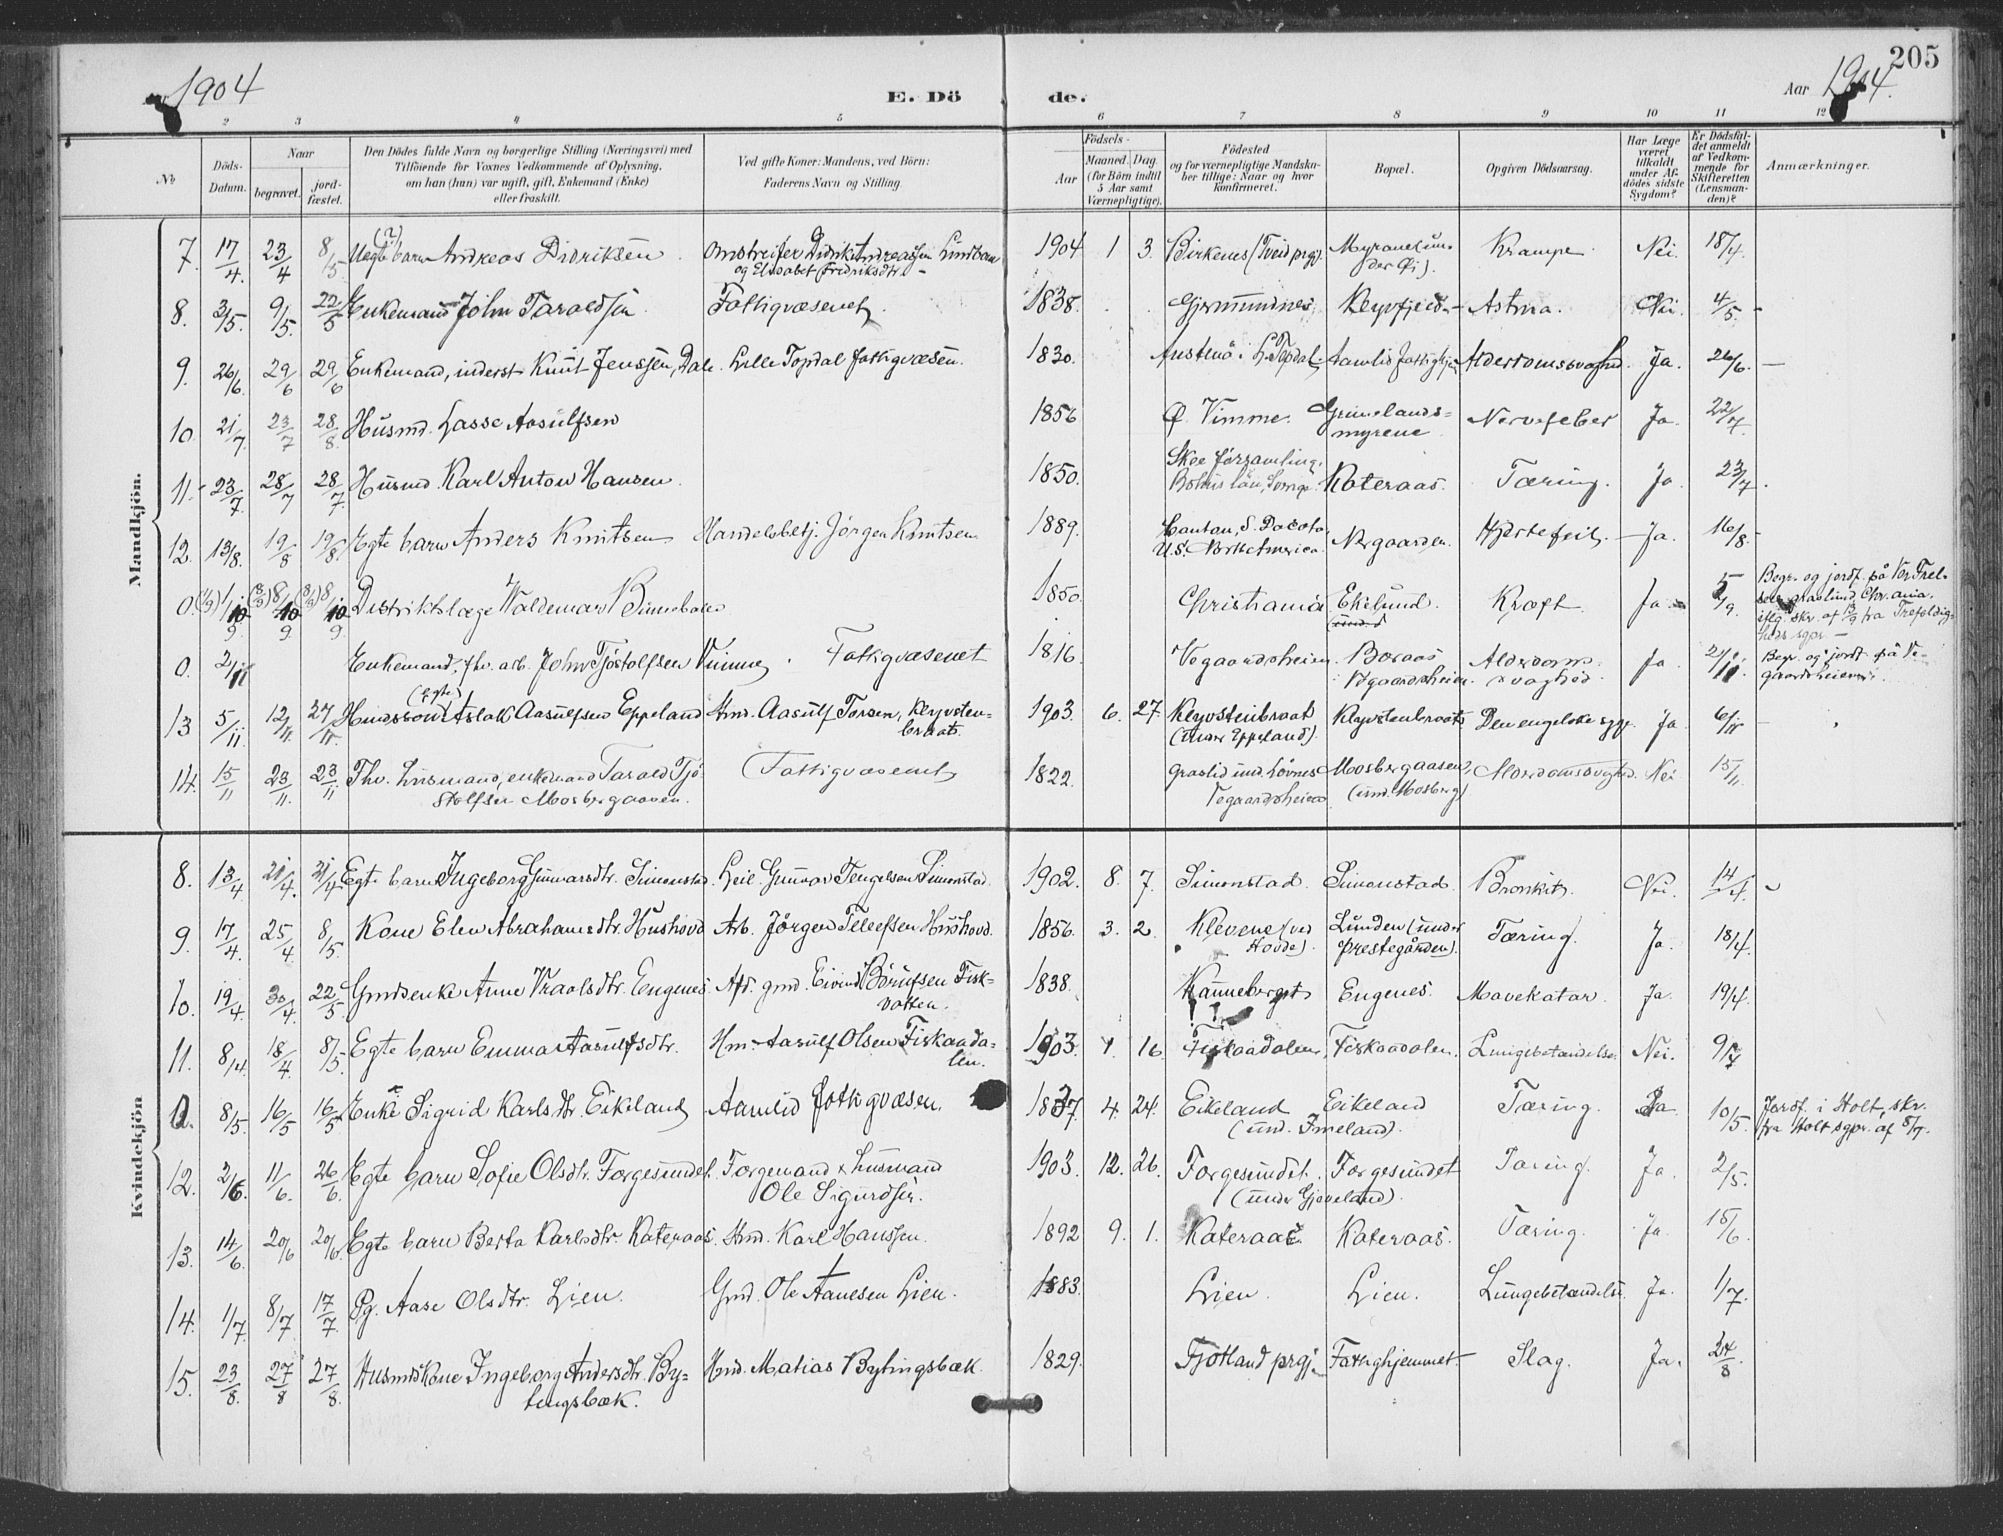 1904
E. Dö de.
Aar 1904.
205
2 3 4 5 6 7 8 9 10 11 12
No
Döds-Datum.
Naar
begravet. jordfæstet.
Den Dödes fulde Navn og borgerlige Stilling (Næringsvei) med
Tilföiende for Voxnes Vedkommende af Oplysning,
om han (hun) var ugift, gift, Enkemand (Enke)
eller fraskilt.
Ved gifte Koner: Mandens, ved Börn:
Faderens Navn og Stilling.
Födsels-
Aar
Maaned. Dag.
(for Börn indtil
5 Aar samt
Værnepligtige).
Födested
og for værnepligtige Mandskaber tillige: Naar og hvor
Konfirmeret.
Bopæl.
Opgiven Dödsaarsag.
Har Læge
været
tilkaldt
under Afdödes sidste
Sygdom?
Er Dödsfaldet anmeldt
af Vedkommende for
Skifteretten
(Lensmanden)?
Anmærkninger.
Mandkjön.
7. 17/4 23/4 8/5 Uegte (?) barn Andreas Didriksen Omstreifer Didrik Andreassen Lindtun og Elisabet Fredriksdtr. 1904 1 3. Birkenes (Tveid prgj). Myrane (under Øi). Krampe. Nei. 18/4
8. 3/5. 9/5. 22/5 Enkemand John Taraldsen. Fattigvæsenet. 1838. Gjermundnes. Reprfjeld. Astma. Nei. 4/5.
9. 26/6 29/6 29/6 Enkemand, inderst Knut Jenssen, Dale. Lille Topdal fattigvæsen. 1830. i L. Topdal. Aamlid fattighjem Alderdomssvaghed. Ja. 26/6.
10. 21/7 23/7 28/8. Husmd. Lasse Aasulfsen 1856 Ø. Vimme. Grimelandsmyrene Nervefeber Ja. 22/7.
11. 23/7 28/7 28/7. Husmd. Karl Anton Hansen. 1850. Skee församling, Bohus län, Sverige. Kateraas. Tæring. Ja. 23/7.
12. 13/8. 19/8 19/8. Egte barn Anders Knutsen Handelsbetj. Jørgen Knutsen. 1889. Canton, S. Dacota, U.S. Nordamerica. Nergaarden. Hjertefeil. Ja. 16/8.
0. (1/9) (8/9) (8/9) Distriktslæge Valdemar 1850. Christiania Eikelund. Kræft. Ja. 5/9. Begr. og jordf. på Vor Frelsers gravlund, Chr.ania, iflg. skr. af 13/9 fra Trefoldigheds sgpr.
0. 2/11 Enkemand, fhv. arb. John Tjøstolfsen Vimme. Fattigvæsenet 1816. Vegaardsheien. Boraas Vegaardsheien. Alderdomssvaghed. Ja. 2/11. Begr. og jordf. på Vegaardsheien.
13 5/11 12/11. 27/11. Husmdssøn (Egte) Aslak Aasulfsen Eppeland Hmd. Aasulf Torsen, Kløvstenbraat. 1903. 6. 27. Kløvstenbraat (under Eppeland). Kløvstenbraat. Den engelske syge. Ja. 6/11
14. 15/11 23/11. 23/11. Fhv. Husmand, enkemand Tarald Tjøstolfsen Mosbergaasen. Fattigvæsenet 1822. Graslid und. Løvnes Vegaardsheien Mosbergaasen, (und. Mosberg) Alderdomssvaghed. Nei. 15/11.
Kvindekjön
8. 13/4. 21/4. 21/4 Egte barn Ingeborg Gunnarsdtr. Simonstad. Leil. Gunnar Tengelsen Simonstad. 1902. 8. 7. Simonstad. Simonstad. Bronkit. Nei. 14/4.
9. 17/4. 25/4 8/5. Kone Elen Abrahamsdtr. Hushovd Arb. Jørgen Tellefsen Hushovd. 1856. 3. 2. Klevene (ved Hovde). Lunden (under prestegården). Tæring. Ja. 18/4.
10. 19/4. 30/4. 22/5 Gmdsenke Anne Vraalsdtr. Engenes. Afd. gmd. Eivind Børufsen Fiskvatten. 1838. Kanneberget Engenes. Mavekatar. Ja. 19/4.
11. 8/4. 18/4. 8/5. Egte barn Emma Aasulfsdtr. Hm. Aasulf Olsen Fiskaadalen. 1903. 16. Fiskaadalen. Fiskaadalen. Lungebetændelse. Nei. 9/7
0. 8/5. 16/5 16/5 Enke Sigrid Karlsdtr. Eikeland Aamlid fattigvæsen. 1837 4. 24. Eikeland (und. Imeland). Eikeland Tæring. Ja. 10/5. Jordf. i Holt, skr. fra Holt sgpr. af 8/7.
12. 2/6. 11/6. 26/6. Egte barn Sofie Olsdtr. Forgesundet. Forgemand & husmand Ole Sigurdsen. 1903. 12. 26. Forgesundet. (under Gjøveland). Forgesundet Tæring. Ja. 2/5.
13. 14/6. 20/6 20/6. Egte barn Berta Karlsdtr. Kateraas. Hmd. Karl Hanssen. 1892 9. 1. Kateraas. Kateraas. Tæring. Ja. 15/6.
14. 1/7. 8/7 17/7. Pg. Aase Olsdtr. Lien. Gmd. Ole Aanesen Lien. 1883. Lien. Lien. Lungebetændelse. Ja. 1/7.
15. 23/8. 27/8 27/8. Husmdskone Ingeborg Andersdtr. Bytingsbæk. Hmd. Matias Bytingsbæk. 1829. Fjotland prgj. Fattighjemmet. Slag. Ja. 24/8.